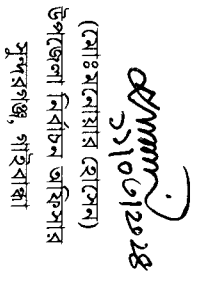 ১১/০৬/২০২৪
(মোঃ মনোয়ার হোসেন)
উপজেলা নির্বাচন অফিসার
সুন্দরগঞ্জ, গাইবান্ধা